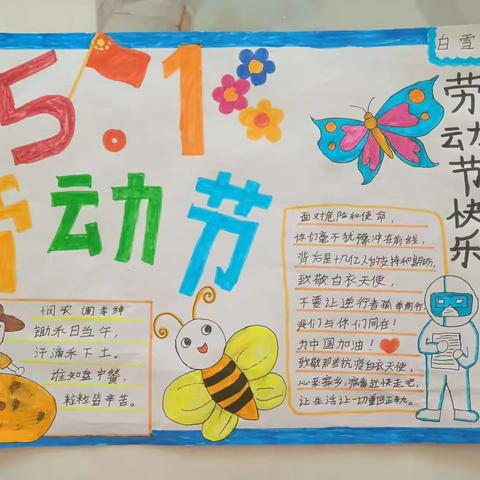 5.1
劳动节
白雪
劳动节快乐
悯农 唐李绅
锄禾日当午，
汗滴禾下土。
谁知盘中餐，
粒粒皆辛苦。
面对危险和使命，
你们毫不犹豫冲在前线，
背后是十几亿人的支持和期盼，
致敬白衣天使，
不要让逆行者孤单前行，
我们与你们同在！
为中国加油！
致敬那些抗疫白衣天使，
心系家乡，病毒赶快走吧，
让生活让一切重回正轨。